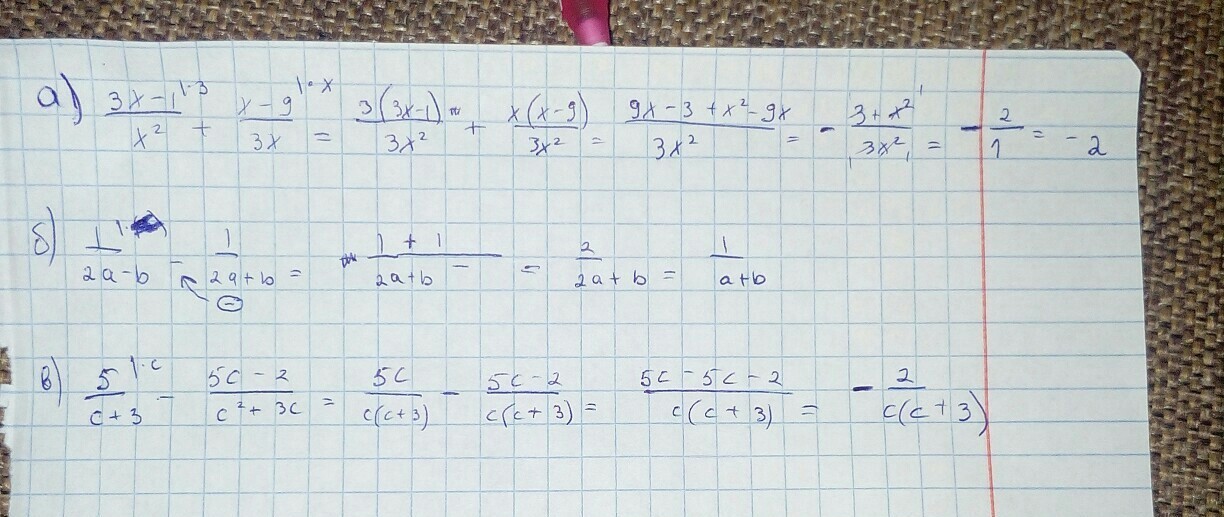 а) (3x-1)/x² |·3 + (x-9)/3x |·x = 3(3x-1)/3x² + x(x-9)/3x² = (9x-3+x²-9x)/3x² = - (3+x²)/3x² = - 2/1 = -2
б) 1/(2a-b) - 1/(2a+b) = (1+1)/(2a+b) = 2/(2a+b) = 1/(a+b)
в) 5/(c+3) |·c - (5c-2)/(c²+3c) = 5c/c(c+3) - (5c-2)/c(c+3) = (5c-5c-2)/c(c+3) = - 2/c(c+3)